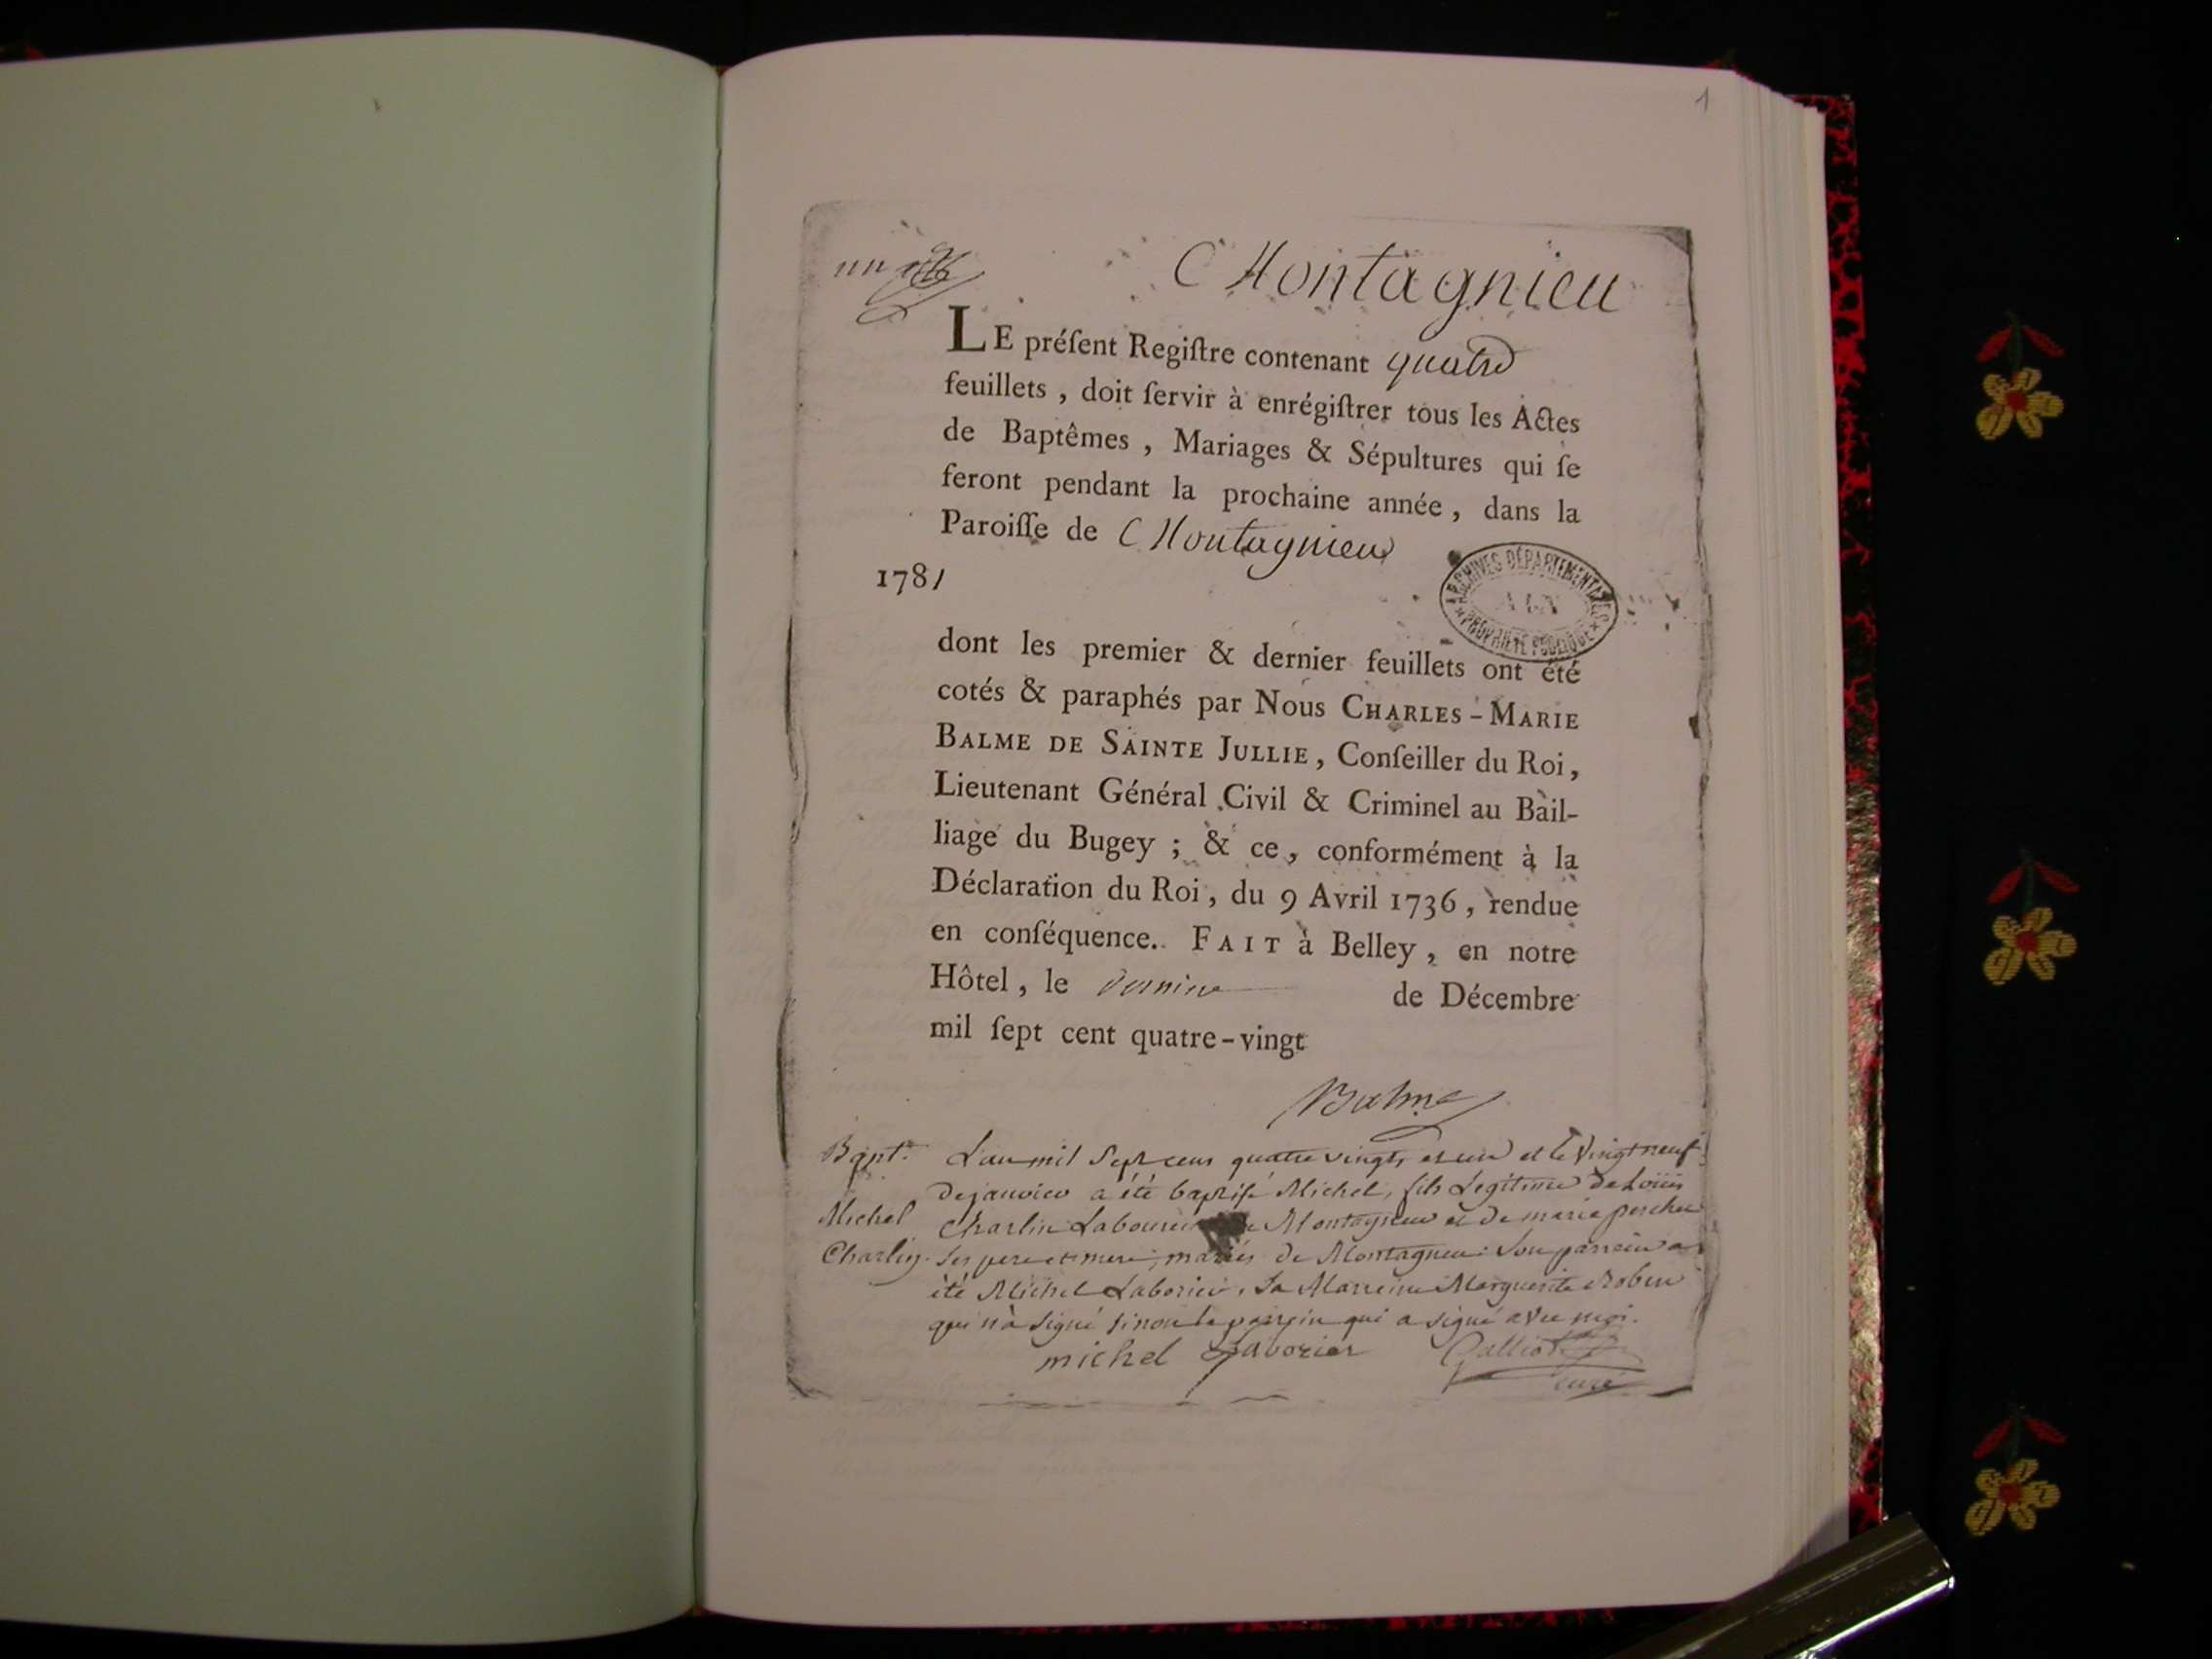 1
un
Montagnieu
LE préſent Regiſtre contenant quatre
feuillets, doit ſervir à enrégiſtrer tous les Actes
de Baptêmes, Mariages & Sépultures qui ſe
feront pendant la prochaine année, dans la
Paroiſſe de Montagnieu
1781
ARCHIVES DÉPARTEMENTALES
AIN
PROPRIÉTÉ PUBLIQUE
dont les premier & dernier feuillets ont été
cotés & paraphés par Nous CHARLES-MARIE
BALME DE SAINTE JULLIE, Conſeiller du Roi,
Lieutenant Général Civil & Criminel au Bail-
liage du Bugey ; & ce, conformément à la
Déclaration du Roi, du 9 Avril 1736, rendue
en conſéquence. FAIT à Belley, en notre
Hôtel, le dernier de Décembre
mil ſept cent quatre-vingt
Balme
Bapt.
Michel
Charlin.
L'an mil Sept cens quatre vingts et un et le Vingt neuf
De janvier a été baptisé Michel, fils Legitime De Loüis
Charlin Laboureur Montagneu et De marie
Ses pere et mere, mariés De Montagneu: Son parrein a
été Michel Laborier, Sa Marreine Marguerite Robin
qui n'a signé sinon le parrein qui a signé avec moi.
michel Laborier Galliot
curé